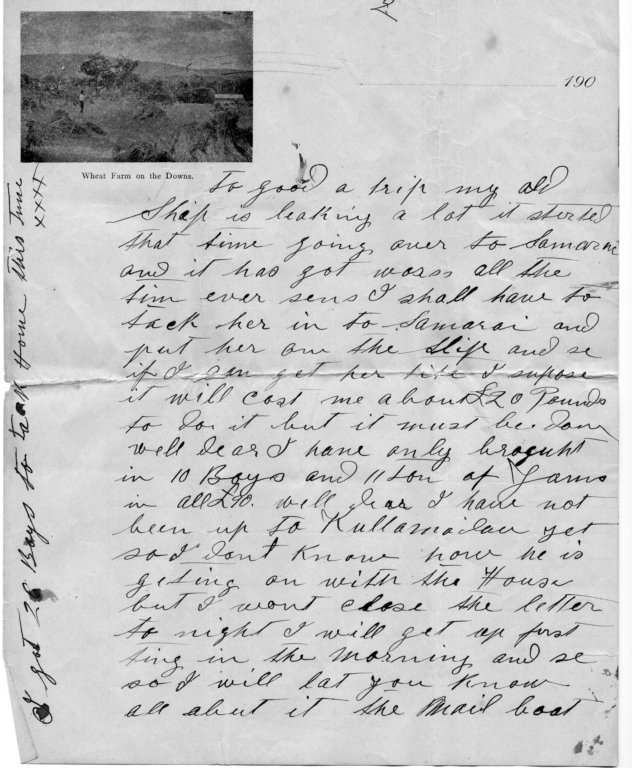 2
190
Wheat Farm on the Downs.
to good a trip my old
Ship is leaking a lot it sterted
that time going over to Samarai
and it has got worss all the
tim ever sens I shall have to
tack her in to Samarai and
put her on the slip and se
if I can get her tite I supose
it will cost me about £20 Pounds
to do it but it must be. don
well dear I have only brought
in 10 Boys and 11 ton of Yams
in all £90. well dear I have not
been up to Kullamadau yet
so I dont know how he is
geting on with the House
but I wont close the letter
to night I will get up first
ting in the Morning and se
so I will lat you know
all about it the Mail boat
I got 26 Boys to tack Home this time
xxxx